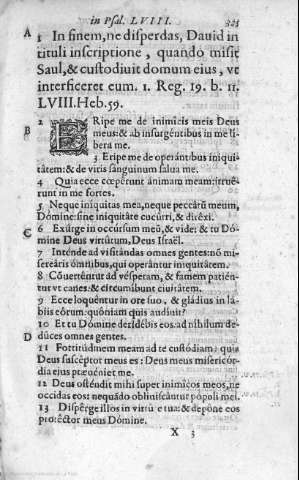 in Psal. LVIII. 325
A 1 In finem, ne disperdas, Dauid in
tituli inscriptione, quando misit
Saul, & custodiuit domum eius, vt
interficeret eum. 1. Reg. 19. b. 11.
LVIII. Heb. 59.
2 ERipe me de inimicis meis Deus
B meus: & ab insurgẽtibus in me li
bera me.
3 Eripe me de operantibus iniqui
tátem: & de viris sánguinum salua me.
4 Quia ecce cœpérunt ánimam meam: irrué-
runt in me fortes.
5 Neque iníquitas mea, neque peccátũ meum,
Dómine: sine iniquitáte cucúrri, & diréxi.
C 6 Exúrge in occúrsum meũ, & vide: & tu Dó-
mine Deus virtútum, Deus Israël.
7 Inténde ad visitándas omnes gentes: nõ mi-
sereáris ómnibus, qui operántur iniquitátem.
8 Cõuerténtur ad vésperam, & famem patién-
tur vt canes: & circuíbunt ciuitátem.
9 Ecce loquéntur in ore suo, & gládius in lá-
biis eórum: quóniam quis audíuit?
10 Et tu Dómine deridébis eos: ad níhilum de-
D dúces omnes gentes.
11 Fortitúdinem meam ad te custódiam: quia
Deus suscéptor meus es: Deus meus misericór-
dia eius præuéniet me.
12 Deus osténdit mihi super inimícos meos, ne
occídas eos: nequãdo obliuiscántur pópuli mei.
13 Dispérge illos in virtúte tua: & depóne eos
protéctor meus Dómine.
X 3